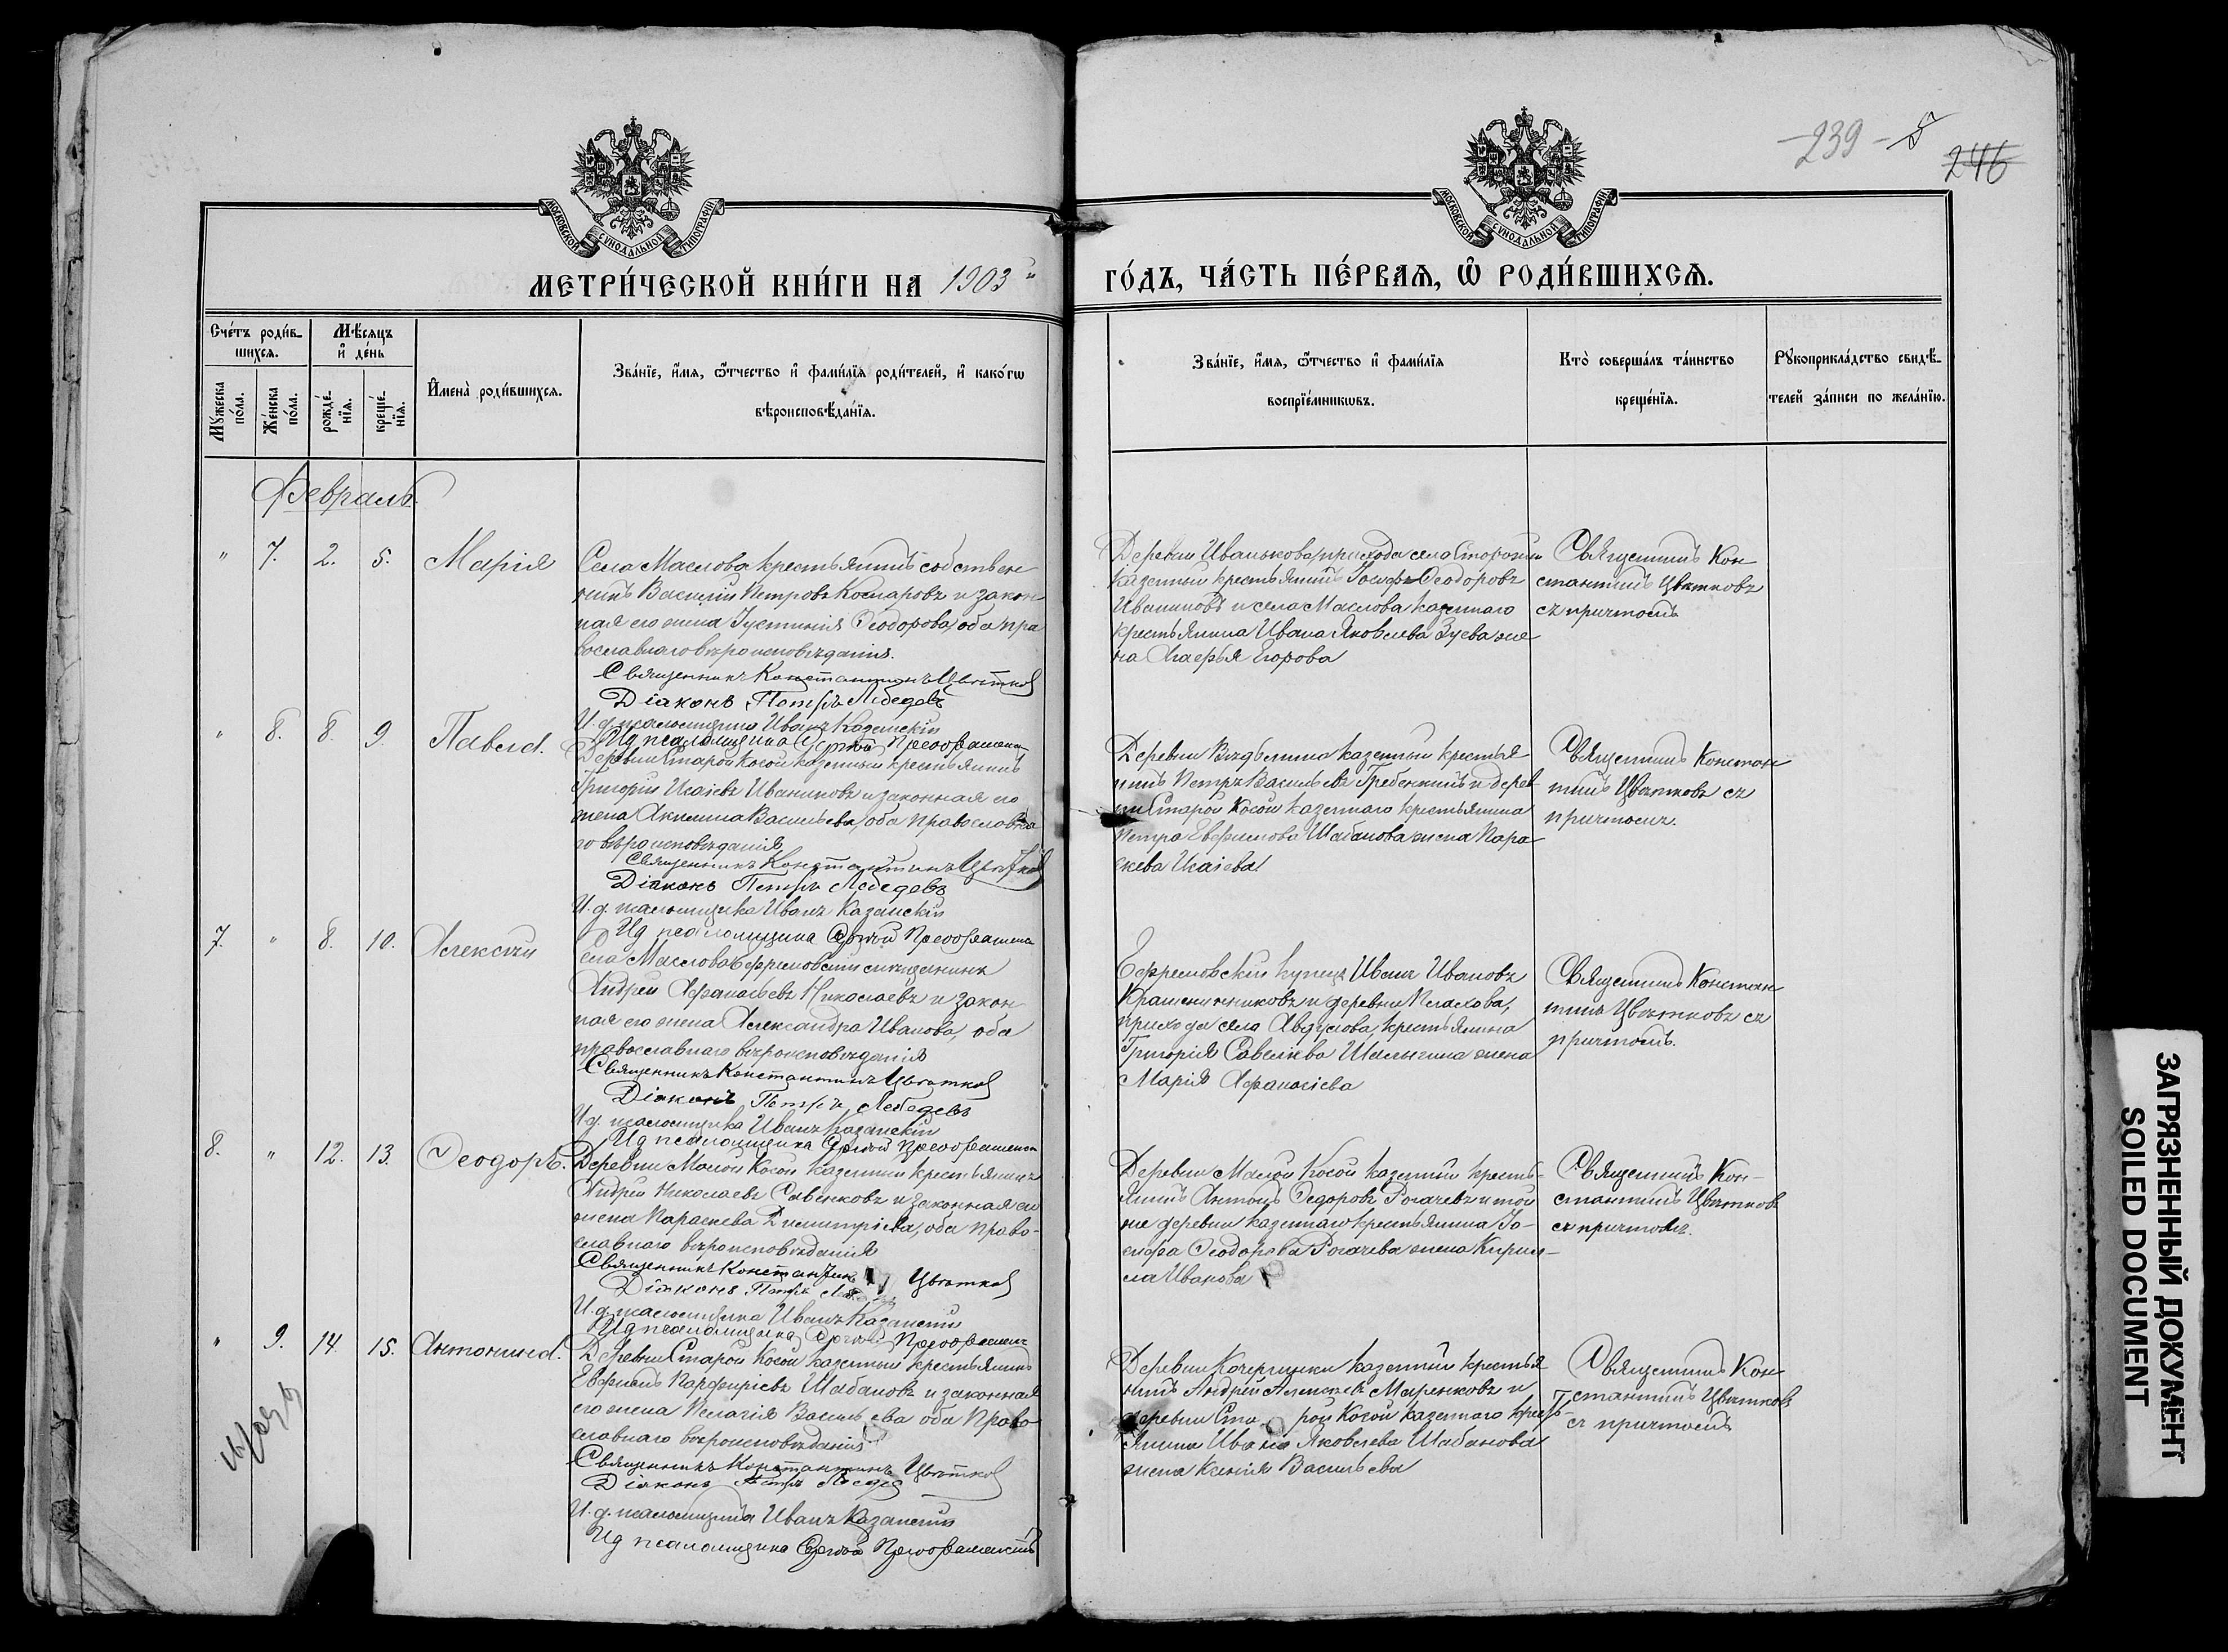 -239- 5
246
МОСКОВСКОЙ СѴНОДАЛЬНОЙ ТИПОГРАФІИ
МОСКОВСКОЙ СѴНОДАЛЬНОЙ ТИПОГРАФІИ
МЕТРИ́ЧЕСКОЙ КНИ́ГИ НА 1903 й
ГО́ДЪ, ЧА́СТЬ ПЕ́РВАѦ, Ѽ РОДИ́ВШИХСѦ.
Сче́тъ роди́в-
шихсѧ.
Мѣ́сѧцъ
и҆ де́нь
Мꙋ́жеска
по́ла.
Же́нска
по́ла.
рожде́-
нїѧ.
креще́-
нїѧ.
И҆мена̀ роди́вшихсѧ.
Зва́нїе, и҆́мѧ, ѻ҆́тчество и҆ фами́лїѧ роди́телей, и҆ како́гѡ
вѣроисповѣ́данїѧ.
Зва́нїе, и҆́мѧ, ѻ҆́тчество и҆ фами́лїѧ
воспрїе́мникѡвъ.
Кто̀ соверша́лъ та́инство
креще́нїѧ.
Рꙋкоприкла́дство свидѣ́-
телей за́писи по жела́нїю.
Февраль.
" 7. 2. 5. Марія
Села Маслова крестьянинъ собствен
никъ Василій Петровъ Комаровъ и закон
ная его жена Іустинія Ѳеодорова, оба пра
вославнаго вѣроисповѣданія.
Священникъ Константинъ Цвѣтков
Діаконъ Петръ Лебедевъ
И. д. псаломщика Иванъ Казанскій
Ид псаломщика Сергѣй Преображенск
Деревни Иванькова, прихода села
казенный крестьянинъ Іосифъ Ѳеодоровъ
Иваниковъ и села Маслова казеннаго
крестьянина Ивана Яковлева Зуева же
на Агафья Егорова
Священникъ Кон
стантинъ Цвѣтковъ
съ причтомъ
" 8. 8. 9. Павла.
Деревни Старой Косой казенный крестьянинъ
Григорій Исаіевъ Иваниковъ и законная его
жена Акилина Васильева, оба православна
го вѣроисповѣданія
Священникъ Константинъ Цвѣтков
Діаконъ Петръ Лебедевъ
И. д. псаломщика Иванъ Казанскій
Ид псаломщика Сергѣй Преображенск
Деревни казенный крестья
нинъ Петръ Васильевъ Гребенкинъ и дерев
ни Старой Косой казеннаго крестьянина
Петра Евфимова Шабанова жена Пара
скева Исаіева
Священникъ Констан
тинъ Цвѣтковъ съ
причтомъ.
7. " 8. 10. Алексѣй
Села Маслова Ефремовскій мѣщанинъ
Андрей Афанасьевъ Николаевъ и закон
ная его жена Александра Иванова, оба
православнаго вѣроисповѣданія
Священникъ Константинъ Цвѣтков
Діаконъ Петръ Лебедевъ
И. д. псаломщика Иванъ Казанскій
Ид псаломщика Сергѣй Преображенск
Ефремовскій купецъ Иванъ Ивановъ
Крашенинниковъ и деревни
прихода села Авдулова, крестьянина
Григорія Савеліева Шалыгина жена
Марія Афанасіева
Священникъ Констан
тинъ Цвѣтковъ съ
причтомъ.
8. " 12. 13. Ѳеодоръ.
Деревни Малой Косой казенный крестьянинъ
Андрей Николаевъ Савенковъ и законная его
жена Параскева Димитріева, оба право-
славнаго вѣроисповѣданія
Священникъ Константинъ Цвѣтков
Діаконъ Петръ
И. д. псаломщика Иванъ Казанскій
Ид псаломщика Сергѣй Преображенск
Деревни Малой Косой казенный кресть-
янинъ Антонъ Ѳедоровъ Рогачевъ и той
же деревни казеннаго крестьянина Іо-
сифа Ѳеодорова Рогачева жена Кирил-
ла Иванова
Священникъ Кон-
стантинъ Цвѣтковъ
съ причтомъ.
" 9. 14. 15. Антонина.
Деревни Старой Косой казенный крестьянинъ
Евфимъ Парфиріевъ Шабановъ и законная
его жена Пелагія Васильева оба право
славнаго вѣроисповѣданія
Священникъ Константинъ Цвѣтков
Діаконъ Петръ
И. д. псаломщика Иванъ Казанскій
Ид псаломщика Сергѣй Преображенскій
Деревни казенный крестья
нинъ Андрей Алексѣевъ Маренковъ и
деревни Старой Косой казеннаго кресть-
янина Ивана Яковлева Шабанова
жена Ксенія Васильева
Священникъ Кон
стантинъ Цвѣтковъ
съ причтомъ
ЗАГРЯЗНЕННЫЙ ДОКУМЕНТ
SOILED DOCUMENT